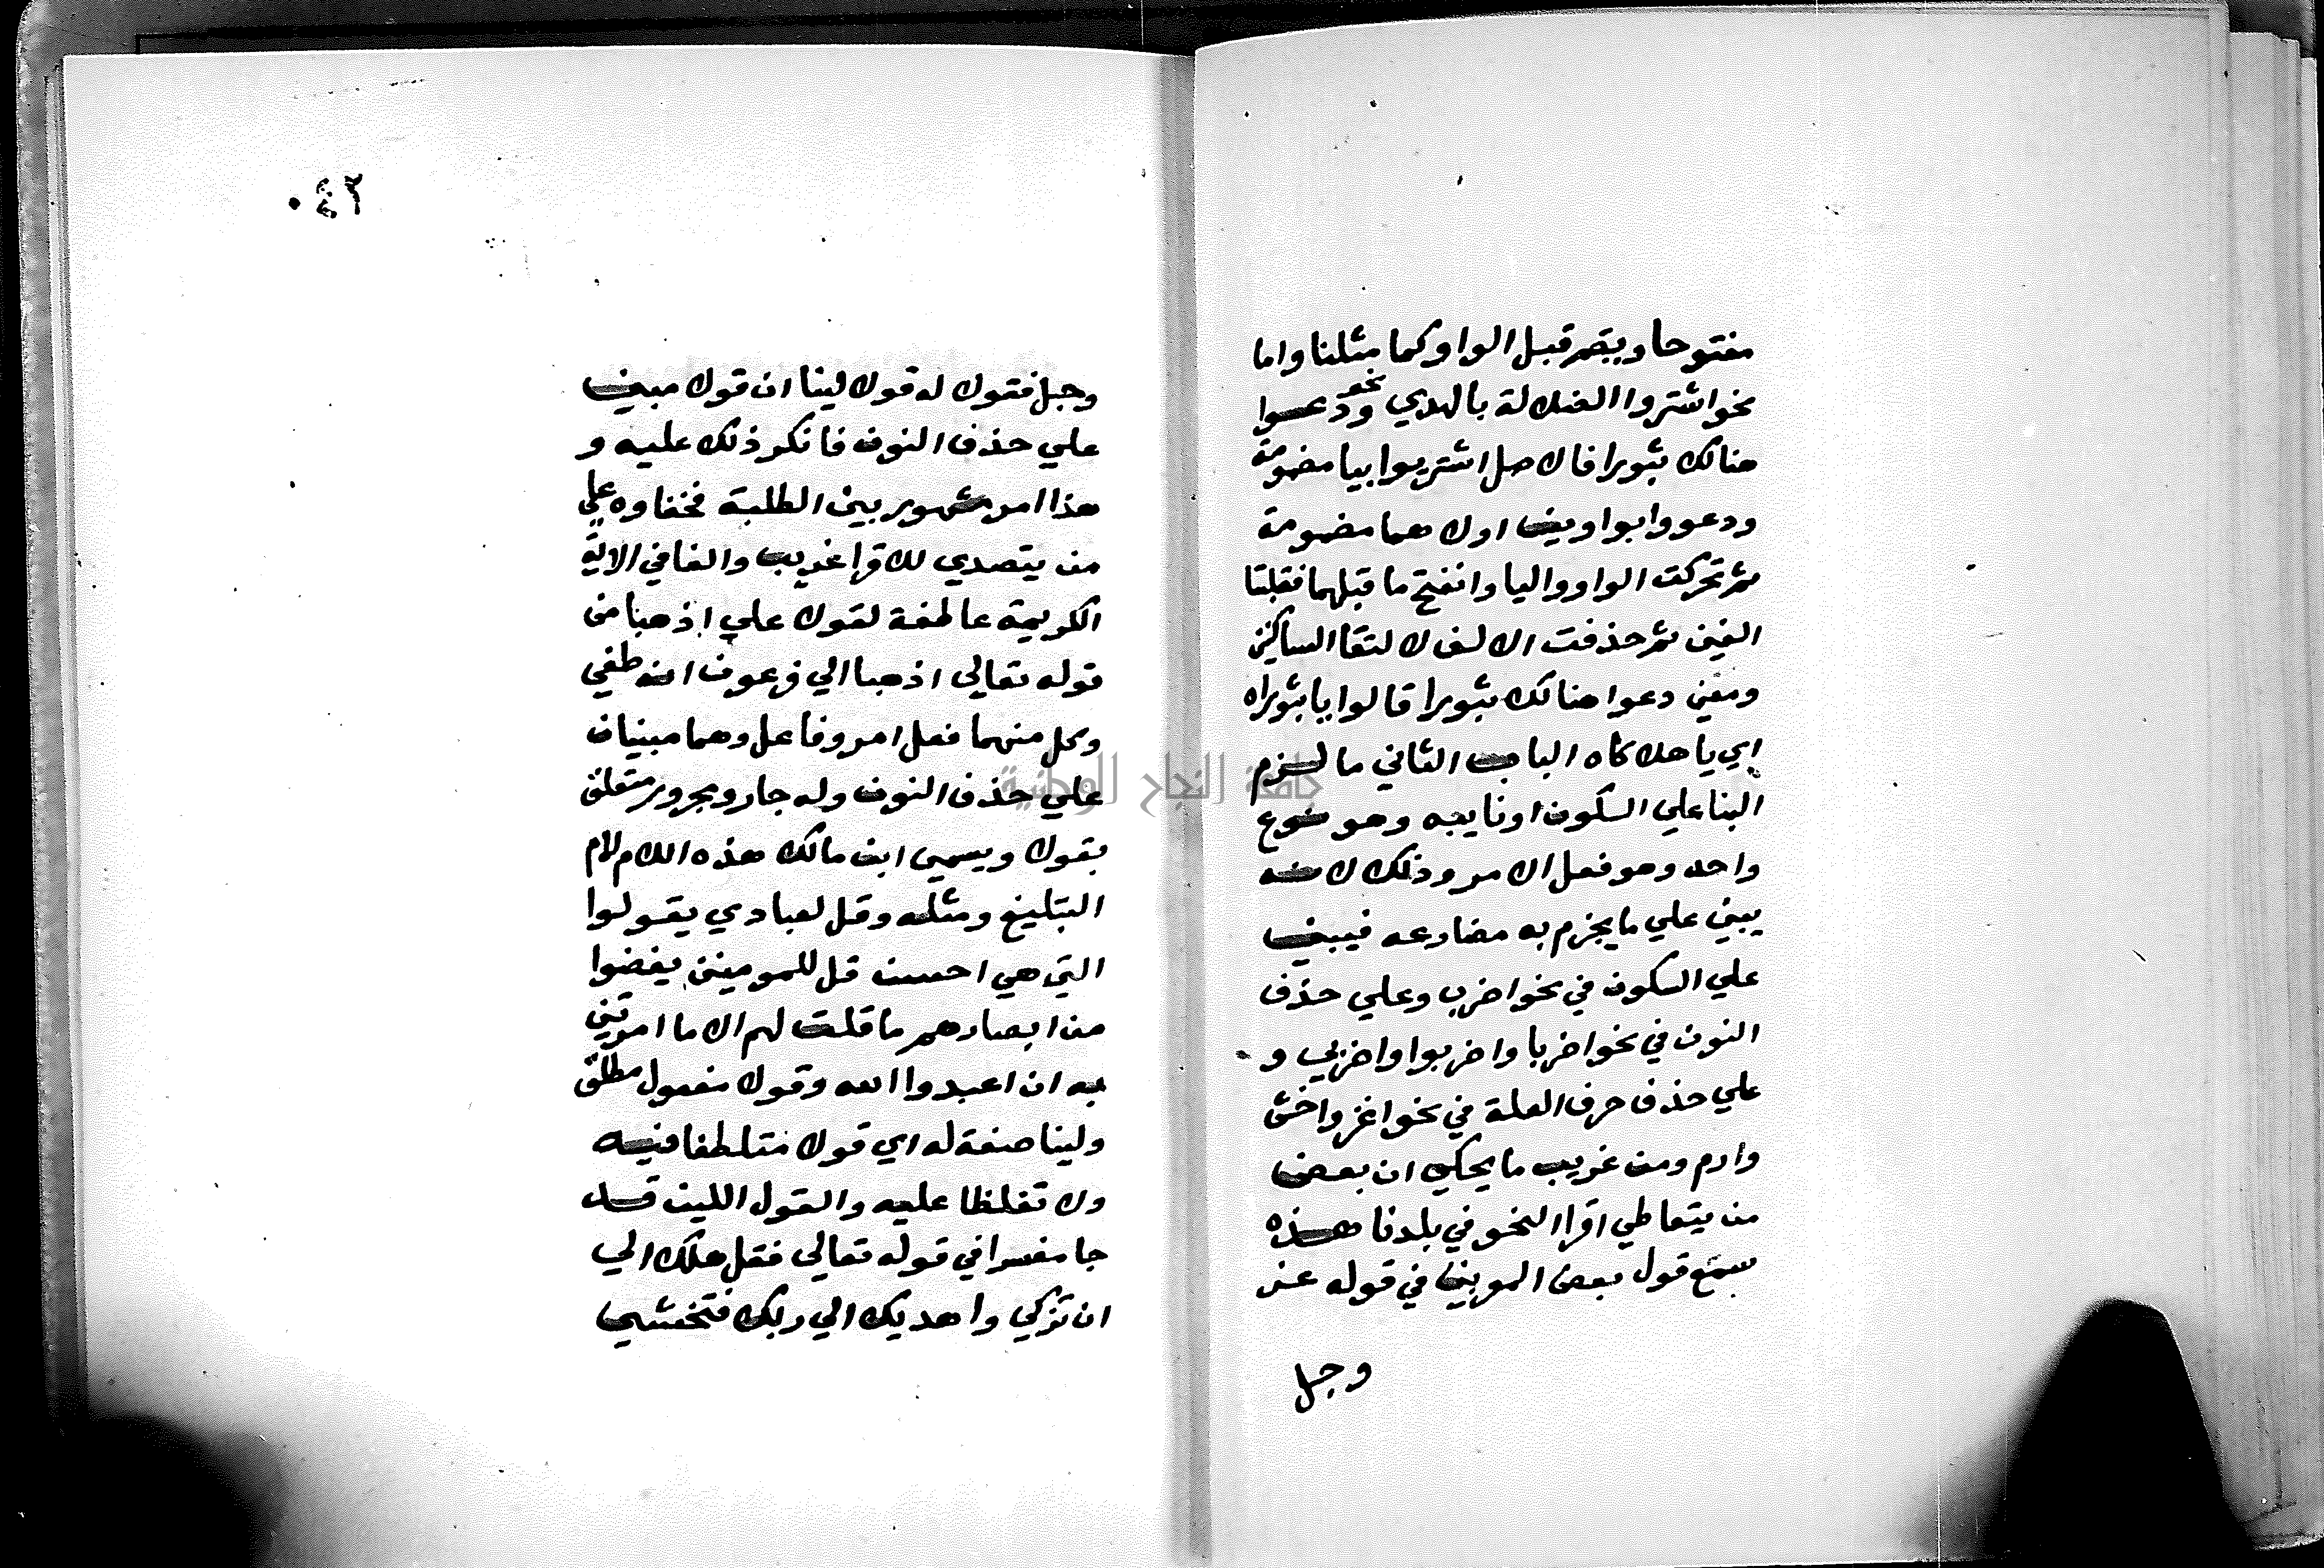 مفتوحا ويقصر قبل الواو كما مثلنا واما
نحو اشتروا الضلالة بالهدي ونحو دعوا
هنالك ثبورا فالاصل اشتريوا بيا مضمومة
ودعووا بواوين اولاهما مضمومة
ثم تحركت الواو واليا وانفتح ما قبلهما فقلبتا
الفين ثم حذفت الالف لالتقا الساكنين
ومعني دعوا هنالك ثبورا قالوا يا ثبوراه
اي يا هلاكاه الباب الثاني ما لزم
البنا علي السكون او نايبه وهو نوع
واحد وهو فعل الامر وذلك لانه
يبني علي ما يجزم به مضارعه فيبني
علي السكون في نحو اضرب وعلي حذف
النون في نحو اضربا واضربوا واضربي و
علي حذف حرف العلة في نحو اغز واخش
وارم ومن غريب ما يحكي ان بعض
من يتعاطي اقرا النحو في بلدنا هذه
سمع قول بعض المعربين في قوله عز
وجل
٠٤٢
وجل فقولا له قولا لينا ان قولا مبني
علي حذف النون فانكر ذلك عليه و
هذا امر مشهور بين الطلبة فخفاوه علي
من يتصدي للاقرا غريب والفا في الاية
الكريمة عاطفة لقولا علي اذهبا من
قوله تعالي اذهبا الي فرعون انه طغي
وكل منهما فعل امر وفاعل وهما مبنيان
علي حذف النون وله جار ومجرور متعلق
بقولا ويسمي ابن مالك هذه اللام لام
التبليغ ومثله وقل لعبادي يقولوا
التي هي احسن قل للمومنين يغضوا
من ابصارهم ما قلت لهم الا ما امرتني
به ان اعبدوا الله وقولا مفعول مطلق
ولينا صفة له اي قولا متلطفا فيه
ولا تغلظا عليه والقول اللين قد
جا مفسرا في قوله تعالي فقل هل لك الي
ان تزكي واهديك الي ربك فتخشي
جامعة النجاح الوطنية